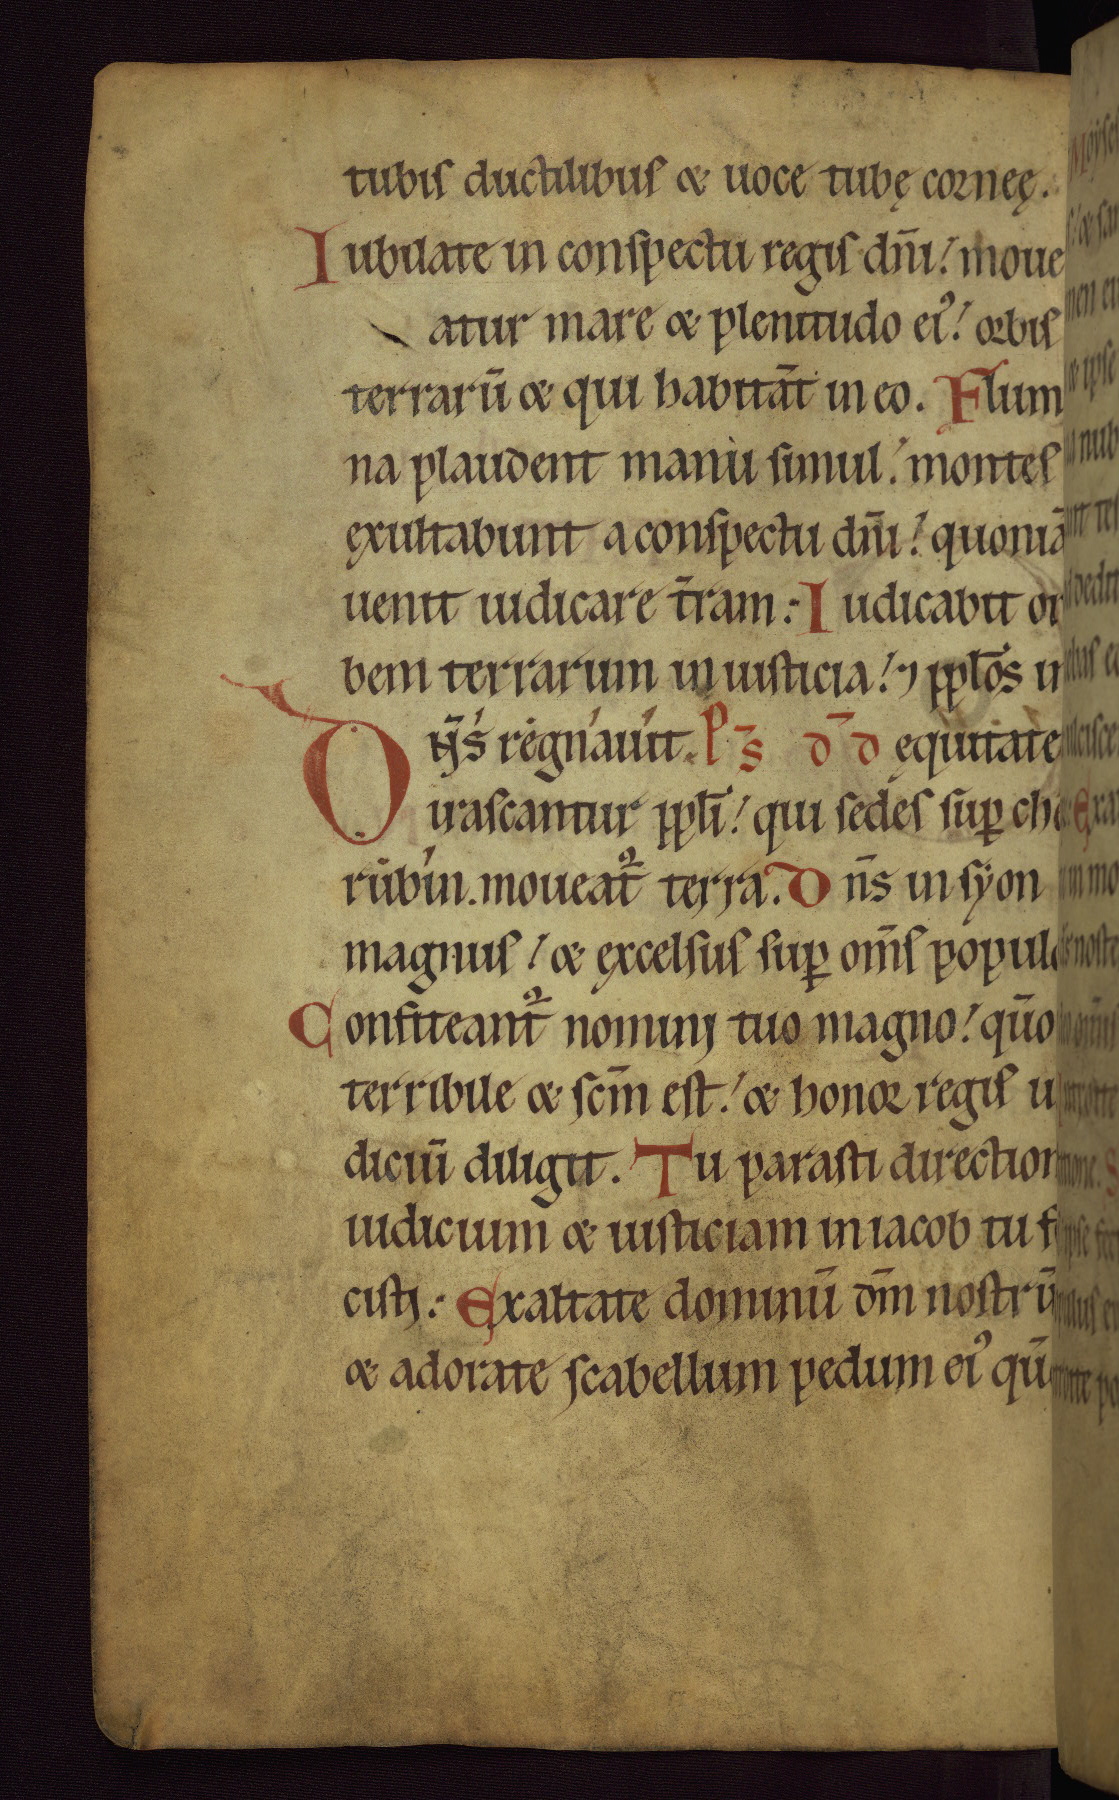 tubis ductilibus & uoce tubę corneę.
Iubilate in conspectu regis dn̄i! moue
atur mare & plenitudo ei᾽! orbis
terrarū & qui habitāt in eo. Flum
na plaudent manu simul! montes
ęxultabunt a conspectu dn̄i! quoniā
uenit iudicare t̄ram. Iudicabit or
bem terrarum in iusticia! ⁊ pplōs in
Dn̄s regnauit. Ps̄ d̄d ęquitate
irascantur pplī! qui sedes sup che
rubin. moueat᷑ terra. Dn̄s in syon
magnus! & ęxcelsus sup om̄s popul
Confiteant᷑ nomini tuo magno! qūo
terribile & sc̄m est! & honor regis iu
diciū diligit. Tu parasti direction
iudicium & iusticiam in iacob tu f
cisti. Exaltate dominū dm̄ nostrū
& adorate scabellum pedum ei᾽ qū